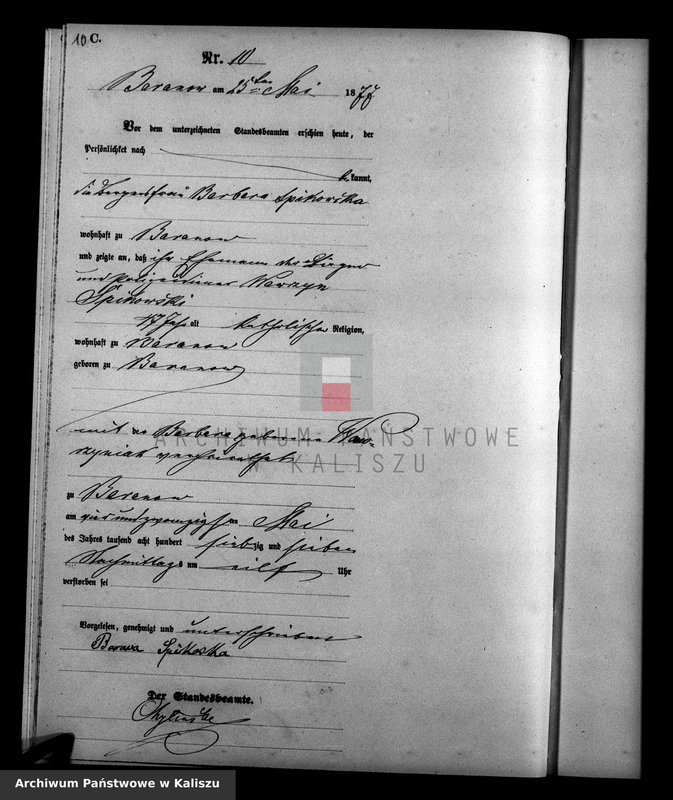 10 C.
Nr. 10
Baranow am 25ten Mai 1877
Vor dem unterzeichneten Standesbeamten erschien heute, der
Persönlichkeit nach
bekannt,
die Bürgersfrau Barbara Spikowska
wohnhaft zu Baranow
und zeigte an, daß ihr Ehemann der Bürger
und Polizeidiener Wawrzyn
Spikowski
47 Jahr alt katholischer Religion,
wohnhaft zu Baranow
geboren zu Baranow
ARCHIWUM PAŃSTWOWE
W KALISZU
mit der Barbara geborenen Waw-
rzyniak verheirathet
zu Baranow
am vier und zwanzigsten Mai
des Jahres tausend acht hundert siebzig und sieben
Nachmittags um eilf Uhr
verstorben sei
Vorgelesen, genehmigt und unterschrieben
Barbara Spikoska
Der Standesbeamte.
Archiwum Państwowe w Kaliszu